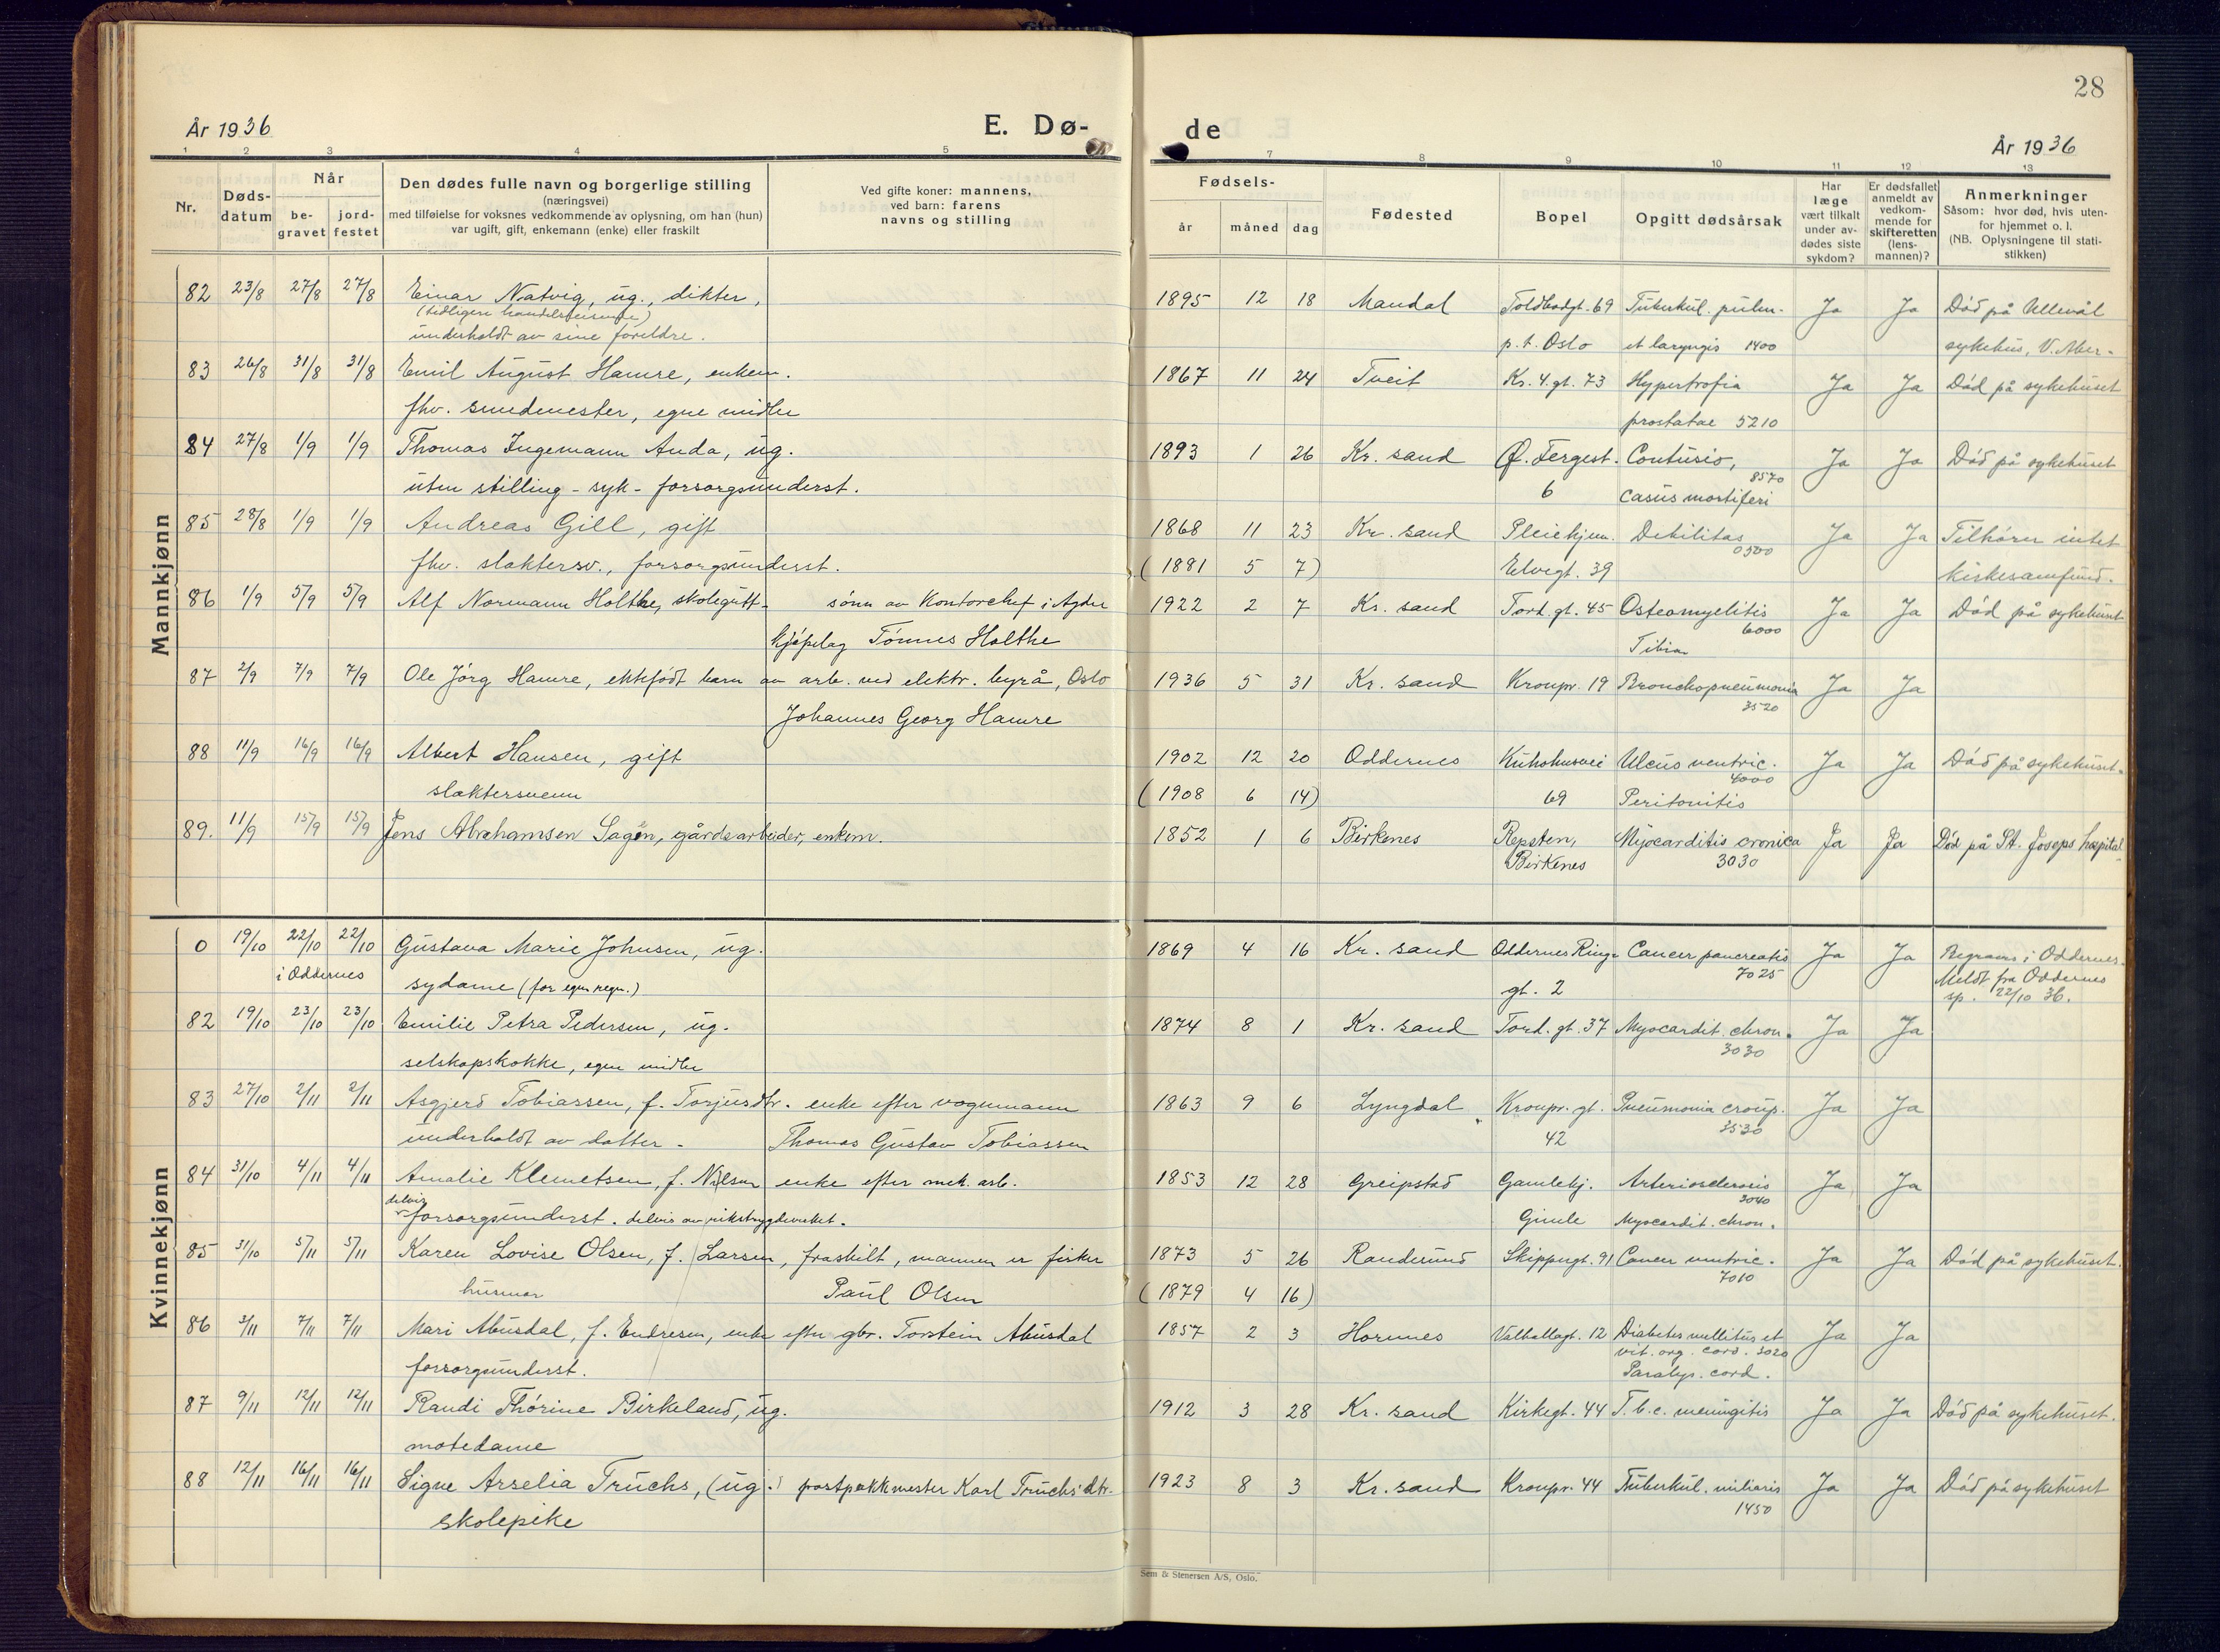 28
År 1936
E. Dø-
de
År 1936
1 2 3 4 5
7 8 9 10 11 12 13
Nr.
Døds-
datum
Når
be-
gravet
jord-
festet
Den dødes fulle navn og borgerlige stilling
(næringsvei)
med tilføielse for voksnes vedkommende av oplysning, om han (hun)
var ugift, gift, enkemann (enke) eller fraskilt
Ved gifte koner: mannens,
ved barn: farens
navns og stilling
Fødsels-
år måned dag
Fødested
Bopel
Opgitt dødsårsak
Har
læge
vært tilkalt
under av-
dødes siste
sykdom?
Er dødsfallet
anmeldt av
vedkom-
mende for
skifteretten
(lens-
mannen)?
Anmerkninger
Såsom: hvor død, hvis uten-
for hjemmet o. l.
(NB. Oplysningene til stati-
stikken)
Mannkjønn
82 23/8 27/8 27/8 Einar Natvig, ug., dikter, 1895 12 18 Mandal Toldbodgt. 69 Tuberkul. pulm. Ja Ja Død på Ullevål
(tidligere handelsreisende)
underholdt av sine foreldre. p.t. Oslo et laryngis 1400 sykehus, V. Aker.
83 26/8 31/8 31/8 Emil August Hamre, enkem. 1867 11 24 Tveit Kr. 4. gt. 73 Hypertrofia Ja Ja Død på sykehuset
fhv. smedmester, egne midler prostatae 5210
84 27/8 1/9 1/9 Thomas Ingemann Anda, ug. 1893 1 26 Kr. sand Ø. Fergest. Contusio, Ja Ja Død på sykehuset
uten stilling - syk - forsorgsunderst. 6 8570 casus mortiferi
85 28/8 1/9 1/9 Andreas Gill, gift 1868 11 23 Kr. sand Pleiehjem. Debilitas Ja Ja Tilhører intet
fhv. slaktersv., forsorgsunderst. (1881 5 7) Elvegt. 39 0500 kirkesamfund.
86 1/9 5/9 5/9 Alf Normann Holthe, skolegutt - sønn av Kontorchef i Agder 1922 2 7 Kr. sand Tord. gt. 45 Osteomyelitis Ja Ja Død på sykehuset
kjøpelag Tønnes Holthe 6000 Tibia
87 2/9 7/9 7/9 Ole Jørg Hamre, ektefødt barn av arb. ved elektr. byrå, Oslo 1936 5 31 Kr. sand Kronpr. 19 Bronchopneumonia Ja Ja
Johannes Georg Hamre 3520
88 11/9 16/9 16/9 Albert Hansen, gift 1902 12 20 Oddernes Kuhshusvei Ulcus ventric. Ja Ja Død på sykehuset.
slaktersvenn (1908 6 14) 69 4000 Peritonitis
89. 11/9 15/9 15/9 Jens Abrahamsen Sagen, gårdsarbeider, enkem. 1852 1 6 Birkenes Repsten, Myocarditis cronica Ja Ja Død på St. Joseps hospital
Birkenes 3030
Kvinnekjønn
0 19/10 22/10 22/10 Gustava Marie Johnsen, ug. 1869 4 16 Kr. sand Oddernes Ring- Cancer pancreatis Ja Ja Begraves i Oddernes.
i Oddernes sydame (for egen regn.) gt. 2 7025 Meldt fra Oddernes
sp. 22/10 36.
82 19/10 23/10 23/10 Emilie Petra Pedersen, ug. 1874 8 1 Kr. sand Tord. gt. 37 Myocardit. chron. Ja Ja
selskapskokke, egne midler 3030
83 27/10 2/11 2/11 Asgjerd Tobiassen, f. Torjusdtr. enke efter vognmann 1863 9 6 Lyngdal Kronpr. gt. Pneumonia croup. Ja Ja
underholdt av datter - Thomas Gustav Tobiassen 42 3530
84 31/10 4/11 4/11 Amalie Klemetsen, f. Nilsen enke efter mek. arb. 1853 12 28 Greipstad Gamlehj. Arteriosclerosis Ja Ja
delvis forsorgsunderst. delvis av rikstrygdeverket. Gimle 3040 Myocardit. chron.
85 31/10 5/11 5/11 Karen Lovise Olsen, f. Larsen, fraskilt, mannen er fisker 1873 5 26 Randesund Skippergt. 91 Cancer ventric. Ja Ja Død på sykehuset.
husmor Paul Olsen (1879 4 16) 7010
86 3/11 7/11 7/11 Mari Abusdal, f. Endresen, enke efter gbr. Torstein Abusdal 1857 2 3 Hornnes Valhallagt. 12 Diabetes mellitus et Ja Ja
forsorgsunderst. vit. org. cord. 3020
Paralys. cord.
87 9/11 12/11 12/11 Randi Thorine Birkeland, ug. 1912 3 28 Kr. sand Kirkegt. 44 T. b. c. meningitis Ja Ja Død på sykehuset.
motedame
88 12/11 16/11 16/11 Signe Arselia Truchs, (ug.) postpakkmester Karl Truchs' dtr. 1923 8 3 Kr. sand Kronpr. 44 Tuberkul. miliaris Ja Ja Død på sykehuset
skolepike 1450
Sem & Stenersen A/S, Oslo.